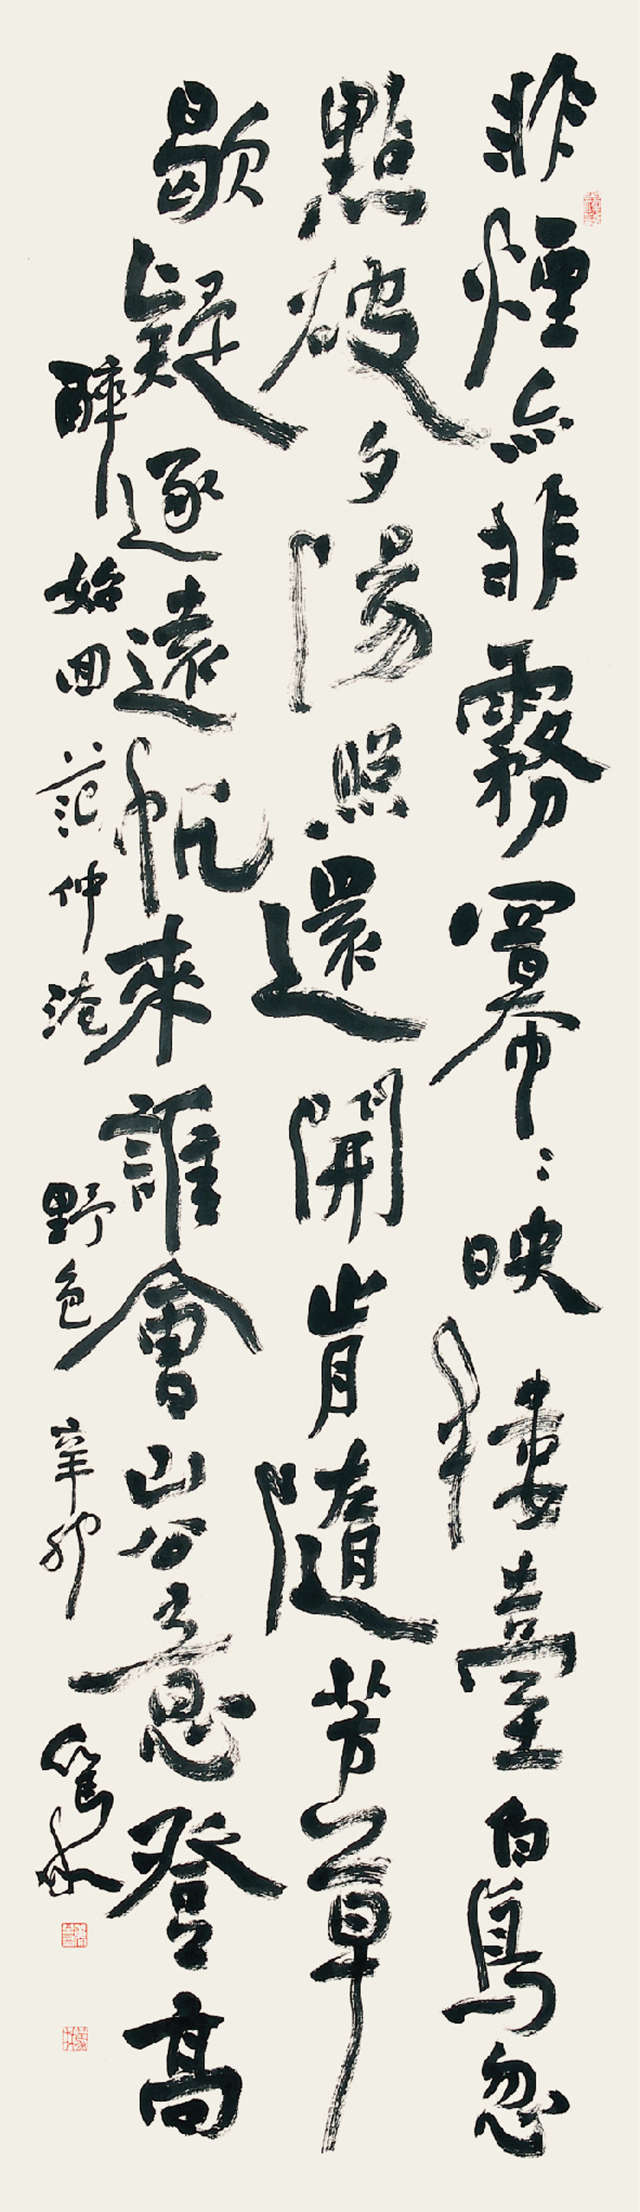 非煙亦非霧幂〻映樓臺白鳥忽
點破夕陽照還開肯隨芳草
歇疑逐遠帆來誰會山公意登高
醉始回范仲淹 野色 辛卯